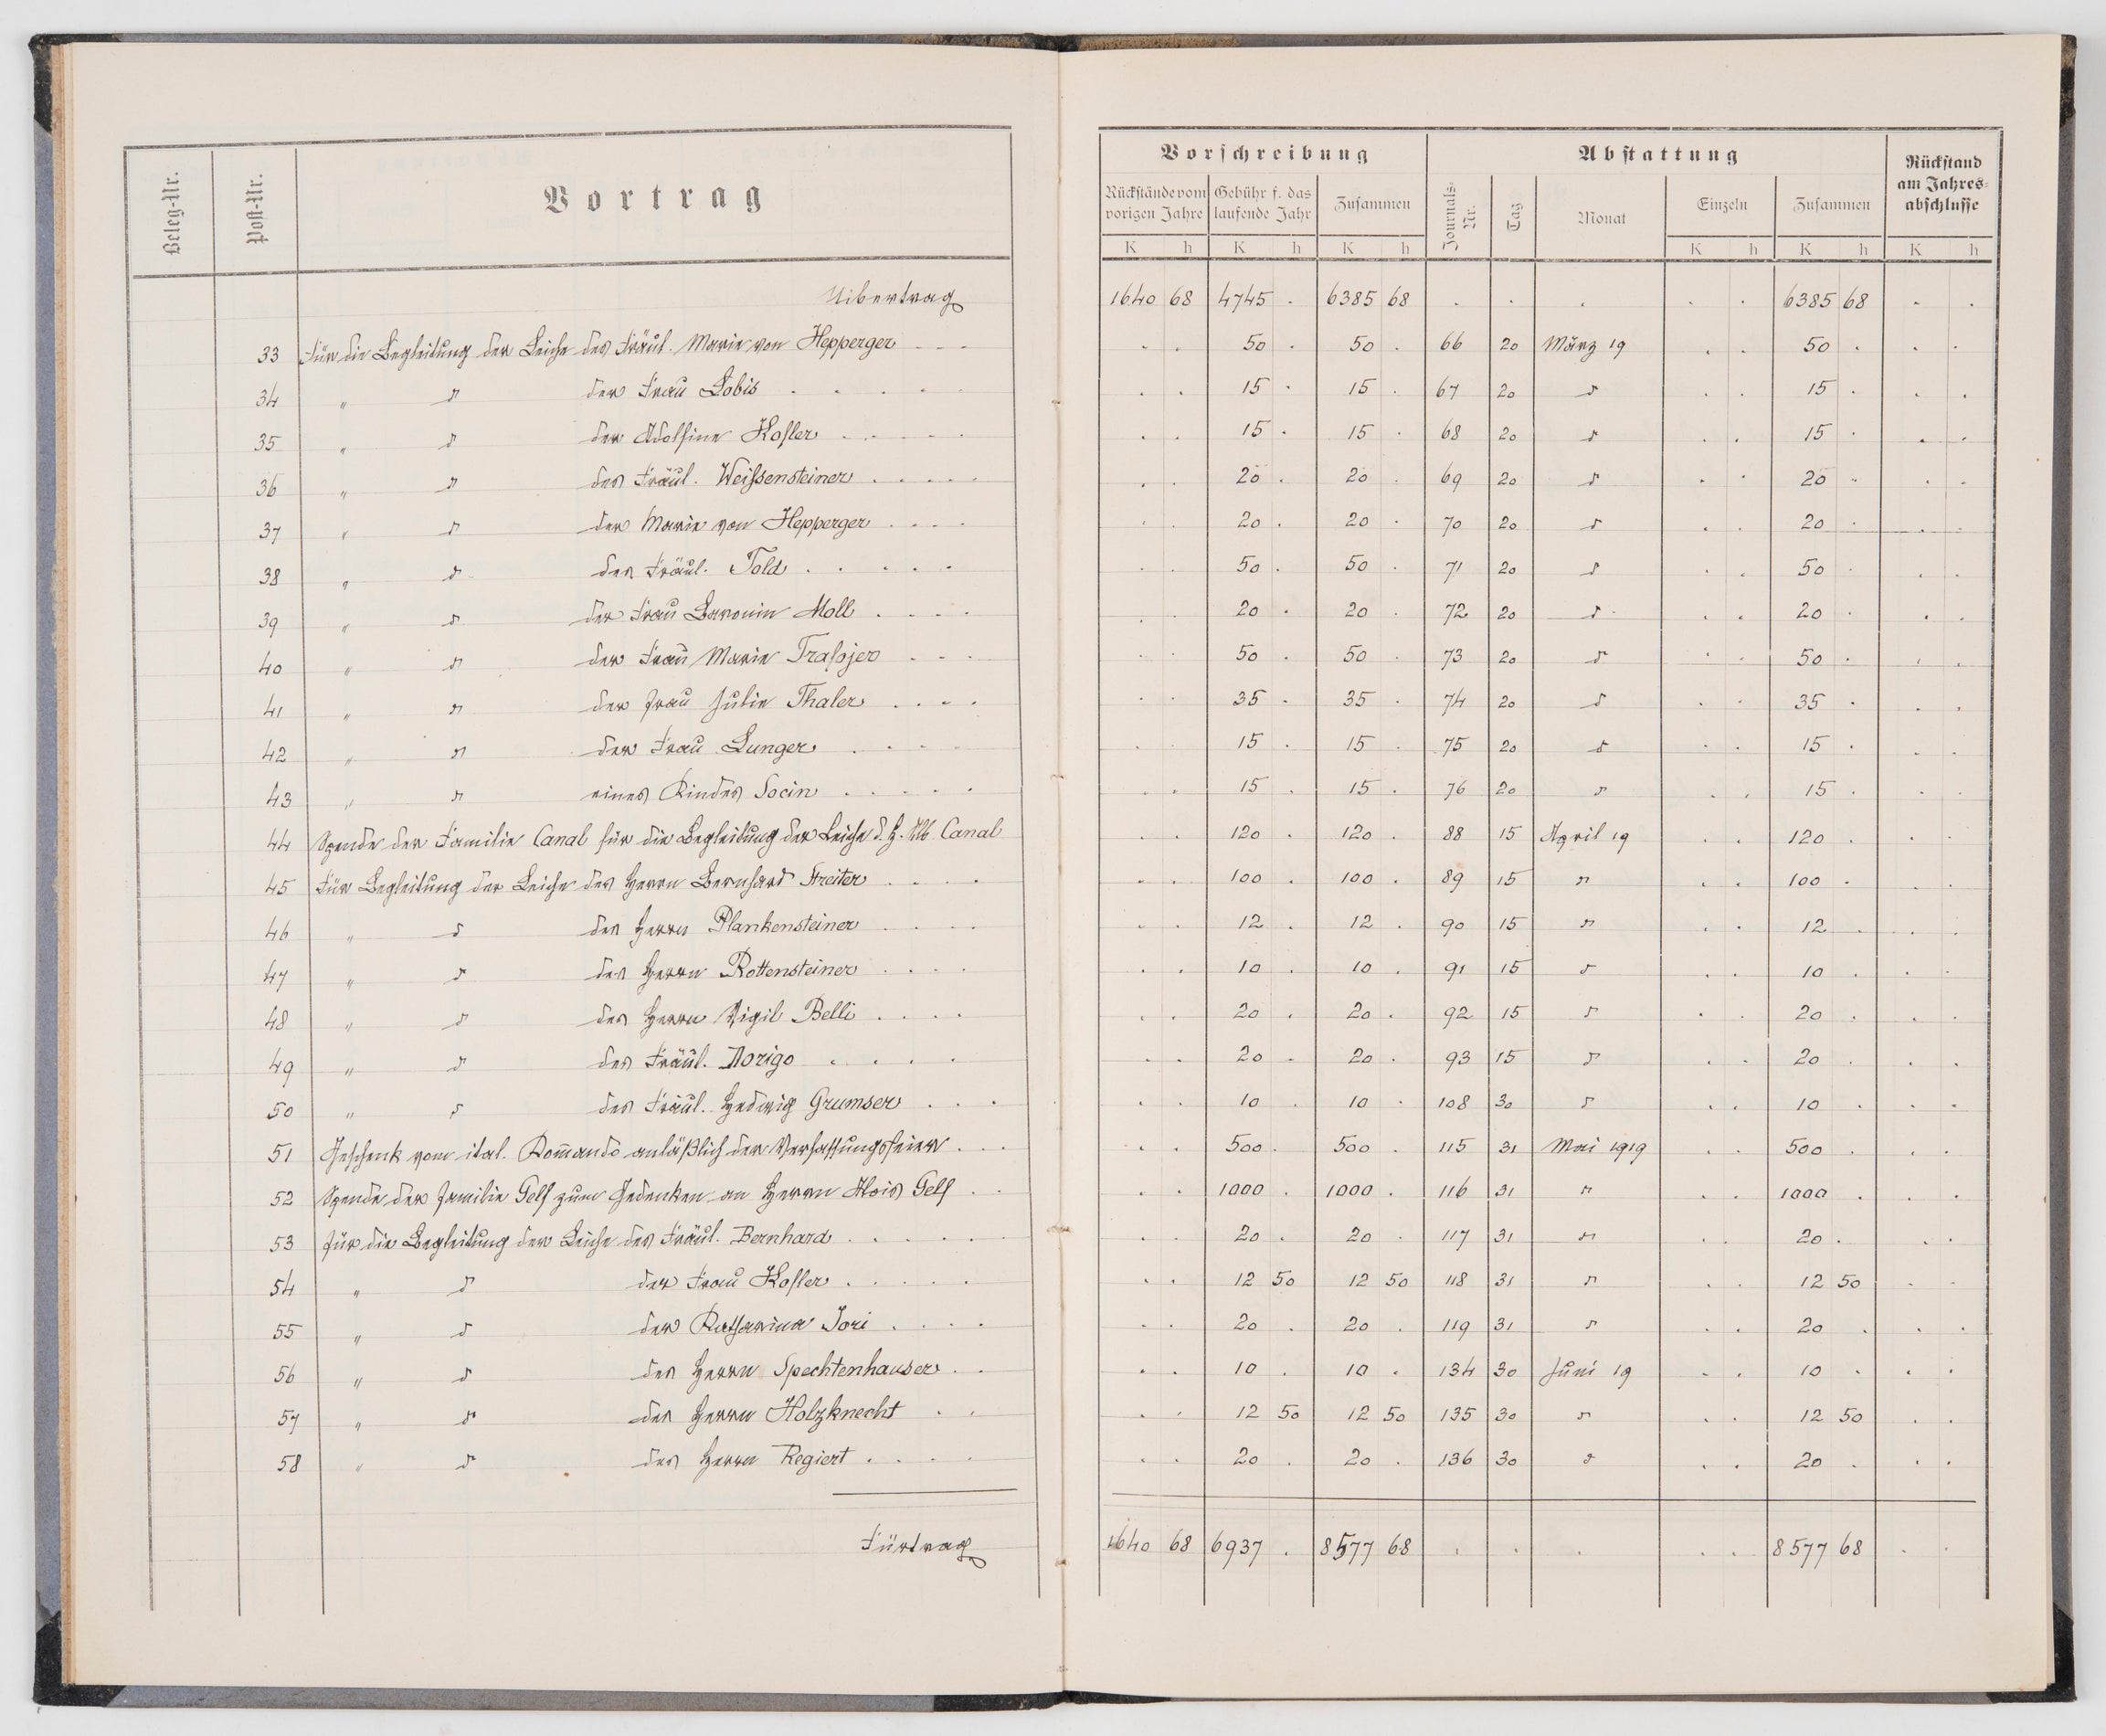 Beleg-Nr. Post-Nr. Vortrag Vorschreibung Abstattung Rückstand am Jahresabschlusse
Rückstände vom vorigen Jahre Gebühr f. das laufende Jahr Zusammen Journals-Nr. Tag Monat Einzeln Zusammen
K h K h K h K h K h K h
Uibertrag 1640 68 4745 . 6385 68 . . . . . 6385 68 . .
33 Für die Begleitung der Leiche des Fräul. Marie von Hepperger - - - . . 50 . 50 . 66 20 März 19 . . 50 . . .
34 " d der Frau Lobis . . . . . . 15 . 15 . 67 20 d . . 15 . . .
35 " d der Adolfine Kofler . . . . . . 15 . 15 . 68 20 d . . 15 . . .
36 " d des Fräul. Weissensteiner . . . . . . . 20 . 20 . 69 20 d . . 20 . . .
37 " d der Marie von Hepperger . . . . . . 20 . 20 . 70 20 d . . 20 . . .
38 " d des Fräul. Told . . . . . . . 50 . 50 . 71 20 d . . 50 . . .
39 " d der Frau Baronin Moll . . . . . . 20 . 20 . 72 20 d . . 20 . . .
40 " d der Frau Marie Trafojer . . . . . 50 . 50 . 73 20 d . . 50 . . .
41 " d der Frau Julie Thaler . . . . . . 35 . 35 . 74 20 d . . 35 . . .
42 " d der Frau Lunger . . . . . 15 . 15 . 75 20 d . . 15 . . .
43 " d eines Kindes Socin . . . . . . . 15 . 15 . 76 20 d . . 15 . . .
44 Spende der Familie Canal für die Begleitung der Leiche d. H. Alb. Canal . . 120 . 120 . 88 15 April 19 . . 120 . . .
45 Für Begleitung der Leiche des Herrn Bernhard Streiter . . . . . . 100 . 100 . 89 15 d . . 100 . . .
46 " d des Herrn Plankensteiner . . . . . . 12 . 12 . 90 15 d . . 12 . . .
47 " d des Herrn Rottensteiner . . . . . . 10 . 10 . 91 15 d . . 10 . . .
48 " d des Herrn Vigil Belli . . . . . . 20 . 20 . 92 15 d . . 20 . . .
49 " d des Fräul. Norigo . . . . . . 20 . 20 . 93 15 d . . 20 . . .
50 " d des Fräul. Hedwig Grumser . . . . . 10 . 10 . 108 30 d . . 10 . . .
51 Geschenk vom ital. Kom̄ando anläßlich der Verfassungsfeier . . . . . 500 . 500 . 115 31 Mai 1919 . . 500 . . .
52 Spende der Familie Gelf zum Gedenken an Herrn Alois Gelf . . . . 1000 . 1000 . 116 31 d . . 1000 . . .
53 Für die Begleitung der Leiche des Fräul. Bernhard . . . . . . . 20 . 20 . 117 31 d . . 20 . . .
54 " d der Frau Kofler . . . . . . . 12 50 12 50 118 31 d . . 12 50 . .
55 " d der Katharina Jori . . . . . . 20 . 20 . 119 31 d . . 20 . . .
56 " d des Herrn Spechtenhauser . . . . 10 . 10 . 134 30 Juni 19 . . 10 . . .
57 " d des Herrn Holzknecht . . . . 12 50 12 50 135 30 d . . 12 50 . .
58 " d des Herrn Regiert . . . . . . 20 . 20 . 136 30 d . . 20 . . .
Fürtrag 1640 68 6937 . 8577 68 . . . . . 8577 68 . .